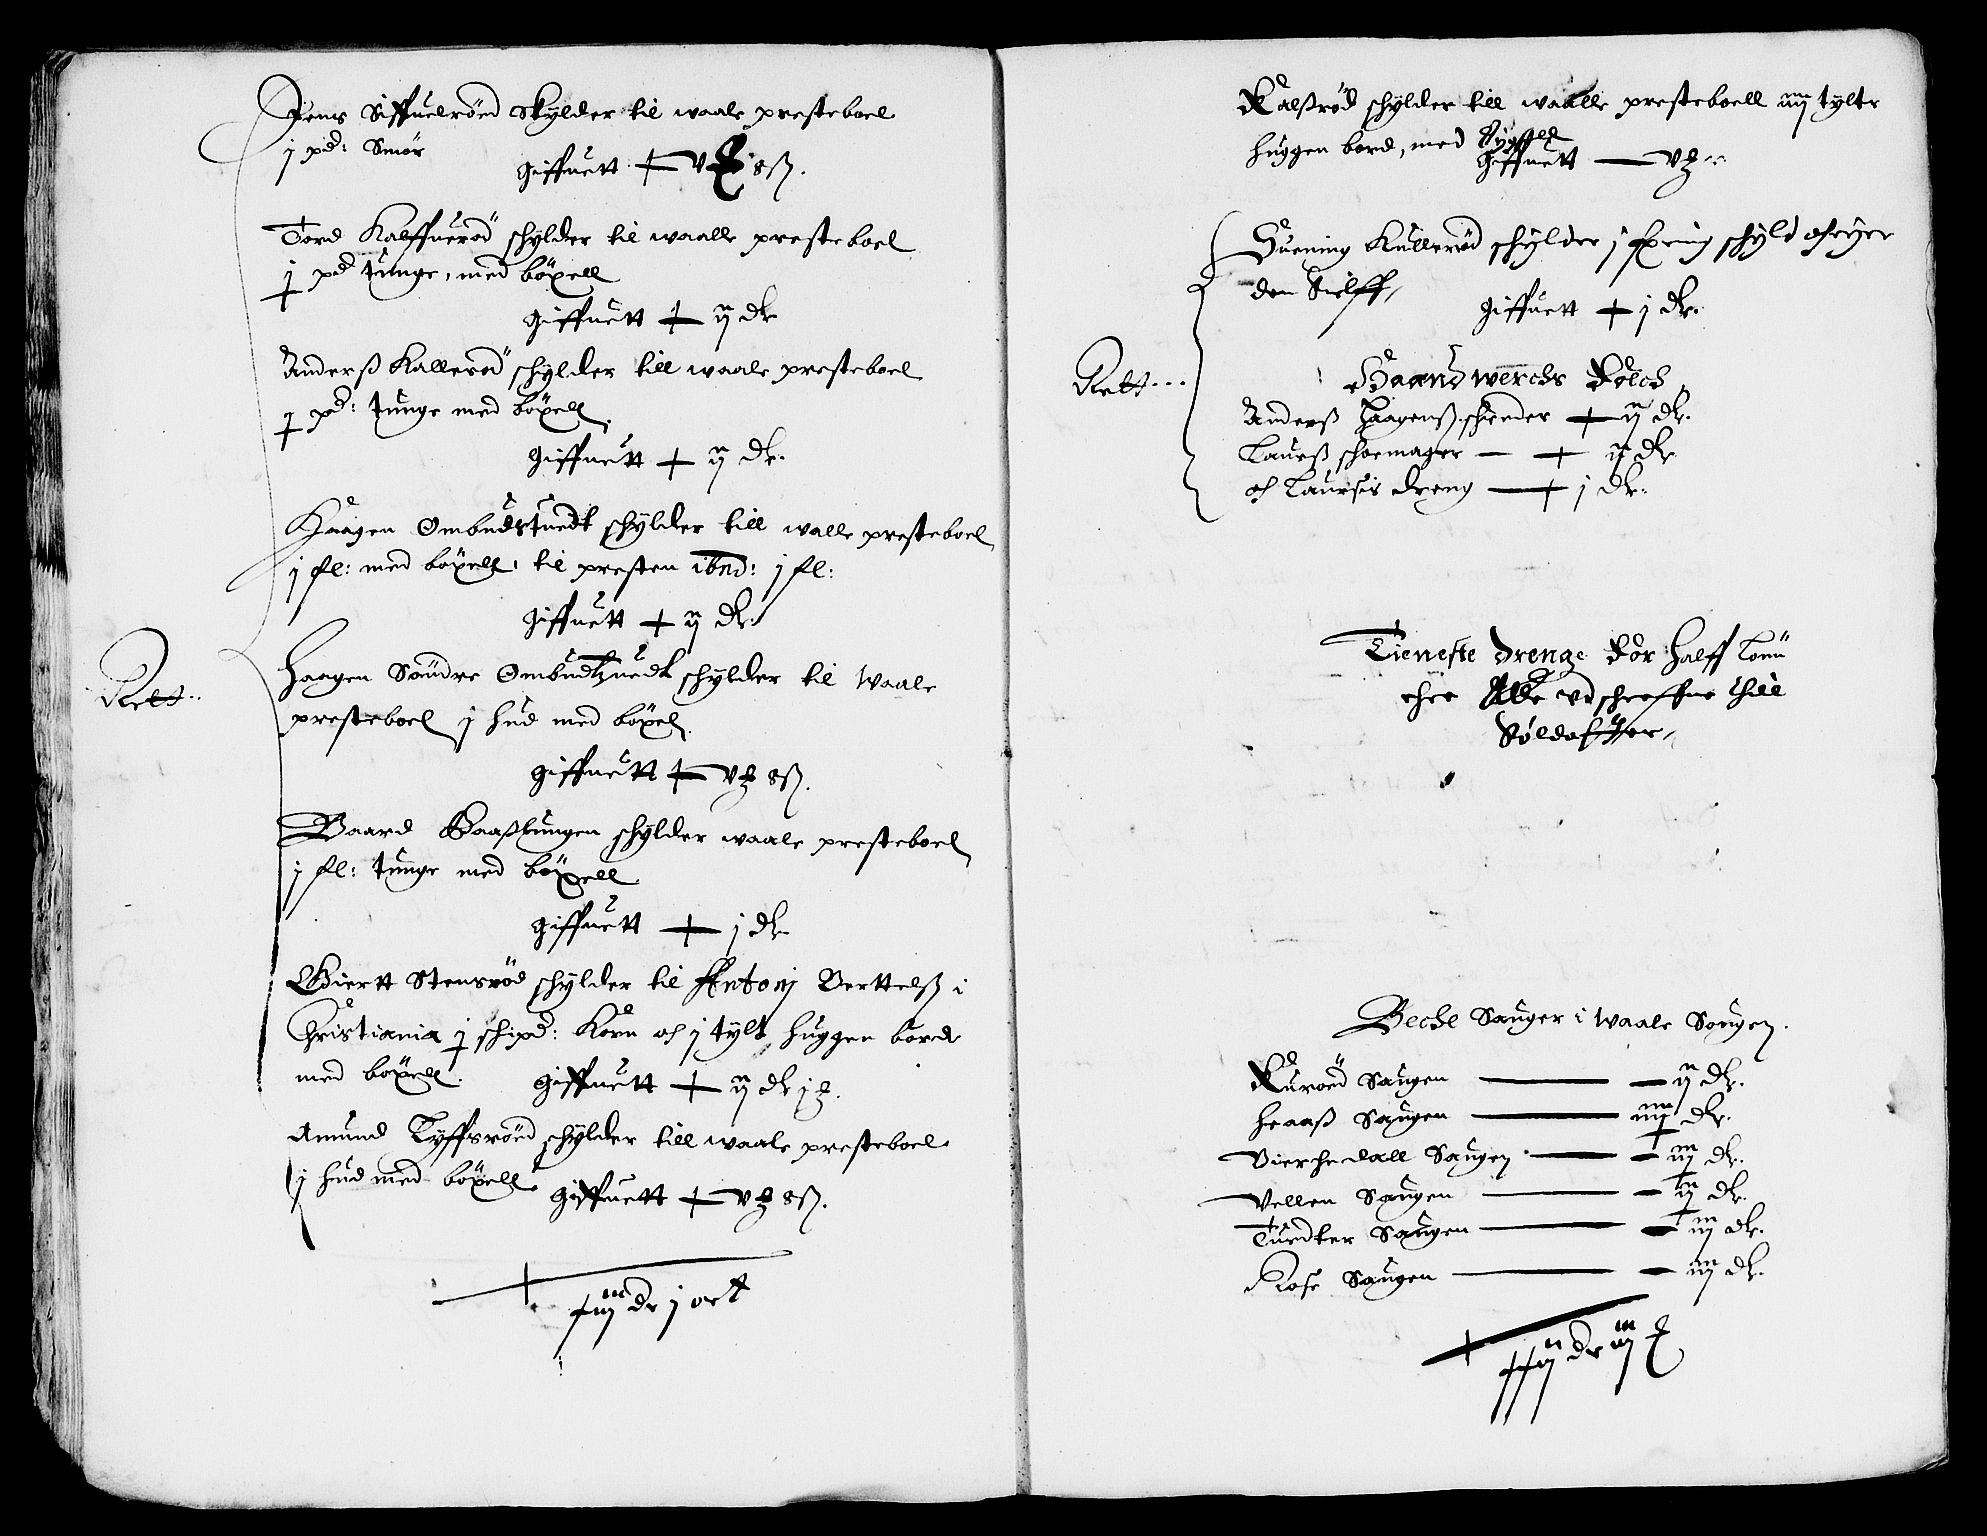 Jens Siffuelrøed Skylder til waale presteboel
j pd: Smør
giffuett + v 8ß.
Tord Kalffuerød schylder til waalle presteboel
j pd tunge, med böxell
giffuett + ij dr
Anderß Kallerød schylder till waale presteboel
j pd: tunge med böxell
giffuett + ij dr.
Haagen Ombudstuedt schylder till walle presteboel
j fl: med böxell, til presten ibnd: j fl:
giffuett + ij dr.
Haagen Søndre Ombudtzuedt schylder til waale
presteboel j hud med böxel
Rett..
giffuett + v 8ß.
Baard Baaßlungen schylder waale presteboel
j fl: tunge med böxell
giffuett + j dr
Giertt Stensrød schylder til Antonj Berttelß i
Christiania j schipd: Korn och j tylt huggen bord
med böxell. giffuett + ij dr j
Amund Tyffsrøed schylder till waale presteboel
j hud med böxell giffuett + v 8ß.
+ xiiij dr j ort
Kalßrød schylder till waalle presteboell iiij tylte
huggen bord, med bygsell
giffuett v
Suening Kullerød schylder j schyld och eyer
den Sielff,
giffuett + j dr.
Rett...
Haandwerchs Folch
Anderß Haagenß. schreder + ij dr.
Laurß schoemager + ij dr
och Laursis dreng + j dr.
Tieneste drenge For halff Lønn
ehre Alle vdschreffne thill
Søldatter,
Beche Sauger i waale Sougen.
Kurøed Saugen ij dr.
heaaß Saugen iiij dr.
Bierche dall Saugen iij dr.
Vellen Saugen ij dr.
Tuedter Saugen iij dr.
Rose Saugen iij dr.
+ xxij dr iij